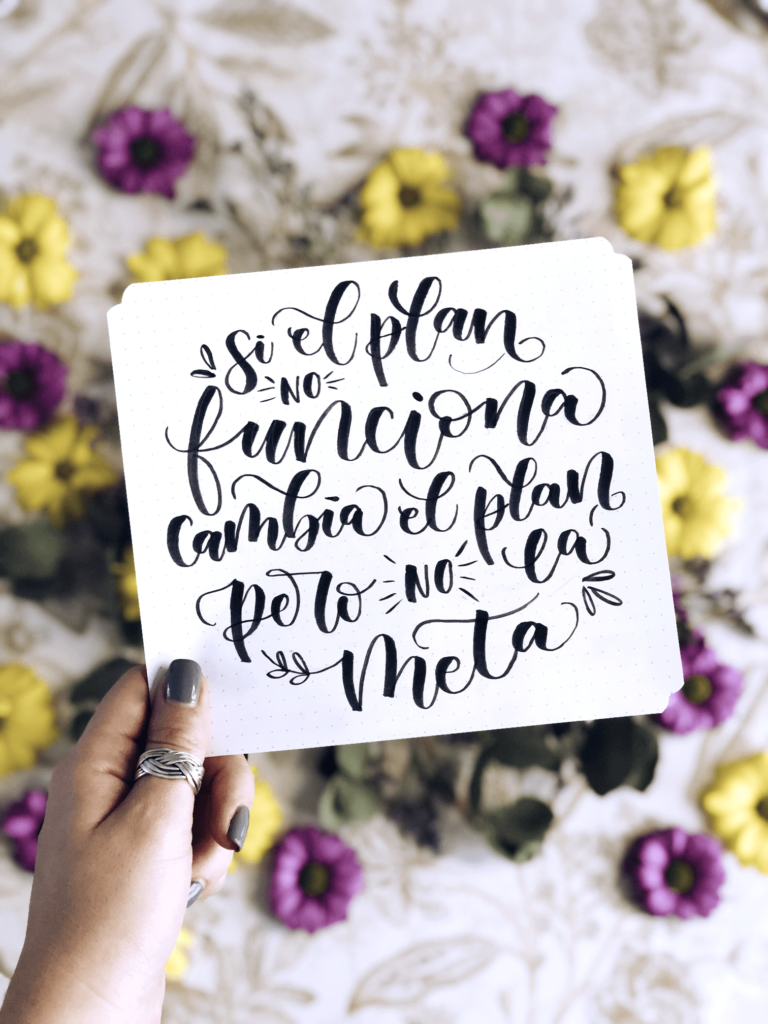 Si el plan
NO
funciona
cambia el plan
pero NO la
Meta